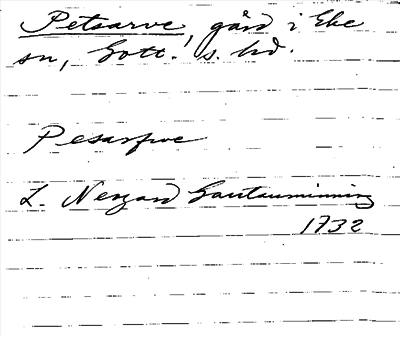 Petsarve, gård i Eke
sn, Gotl. s. hd.
Pesarfve
L. Neogard Gautauminning
1732